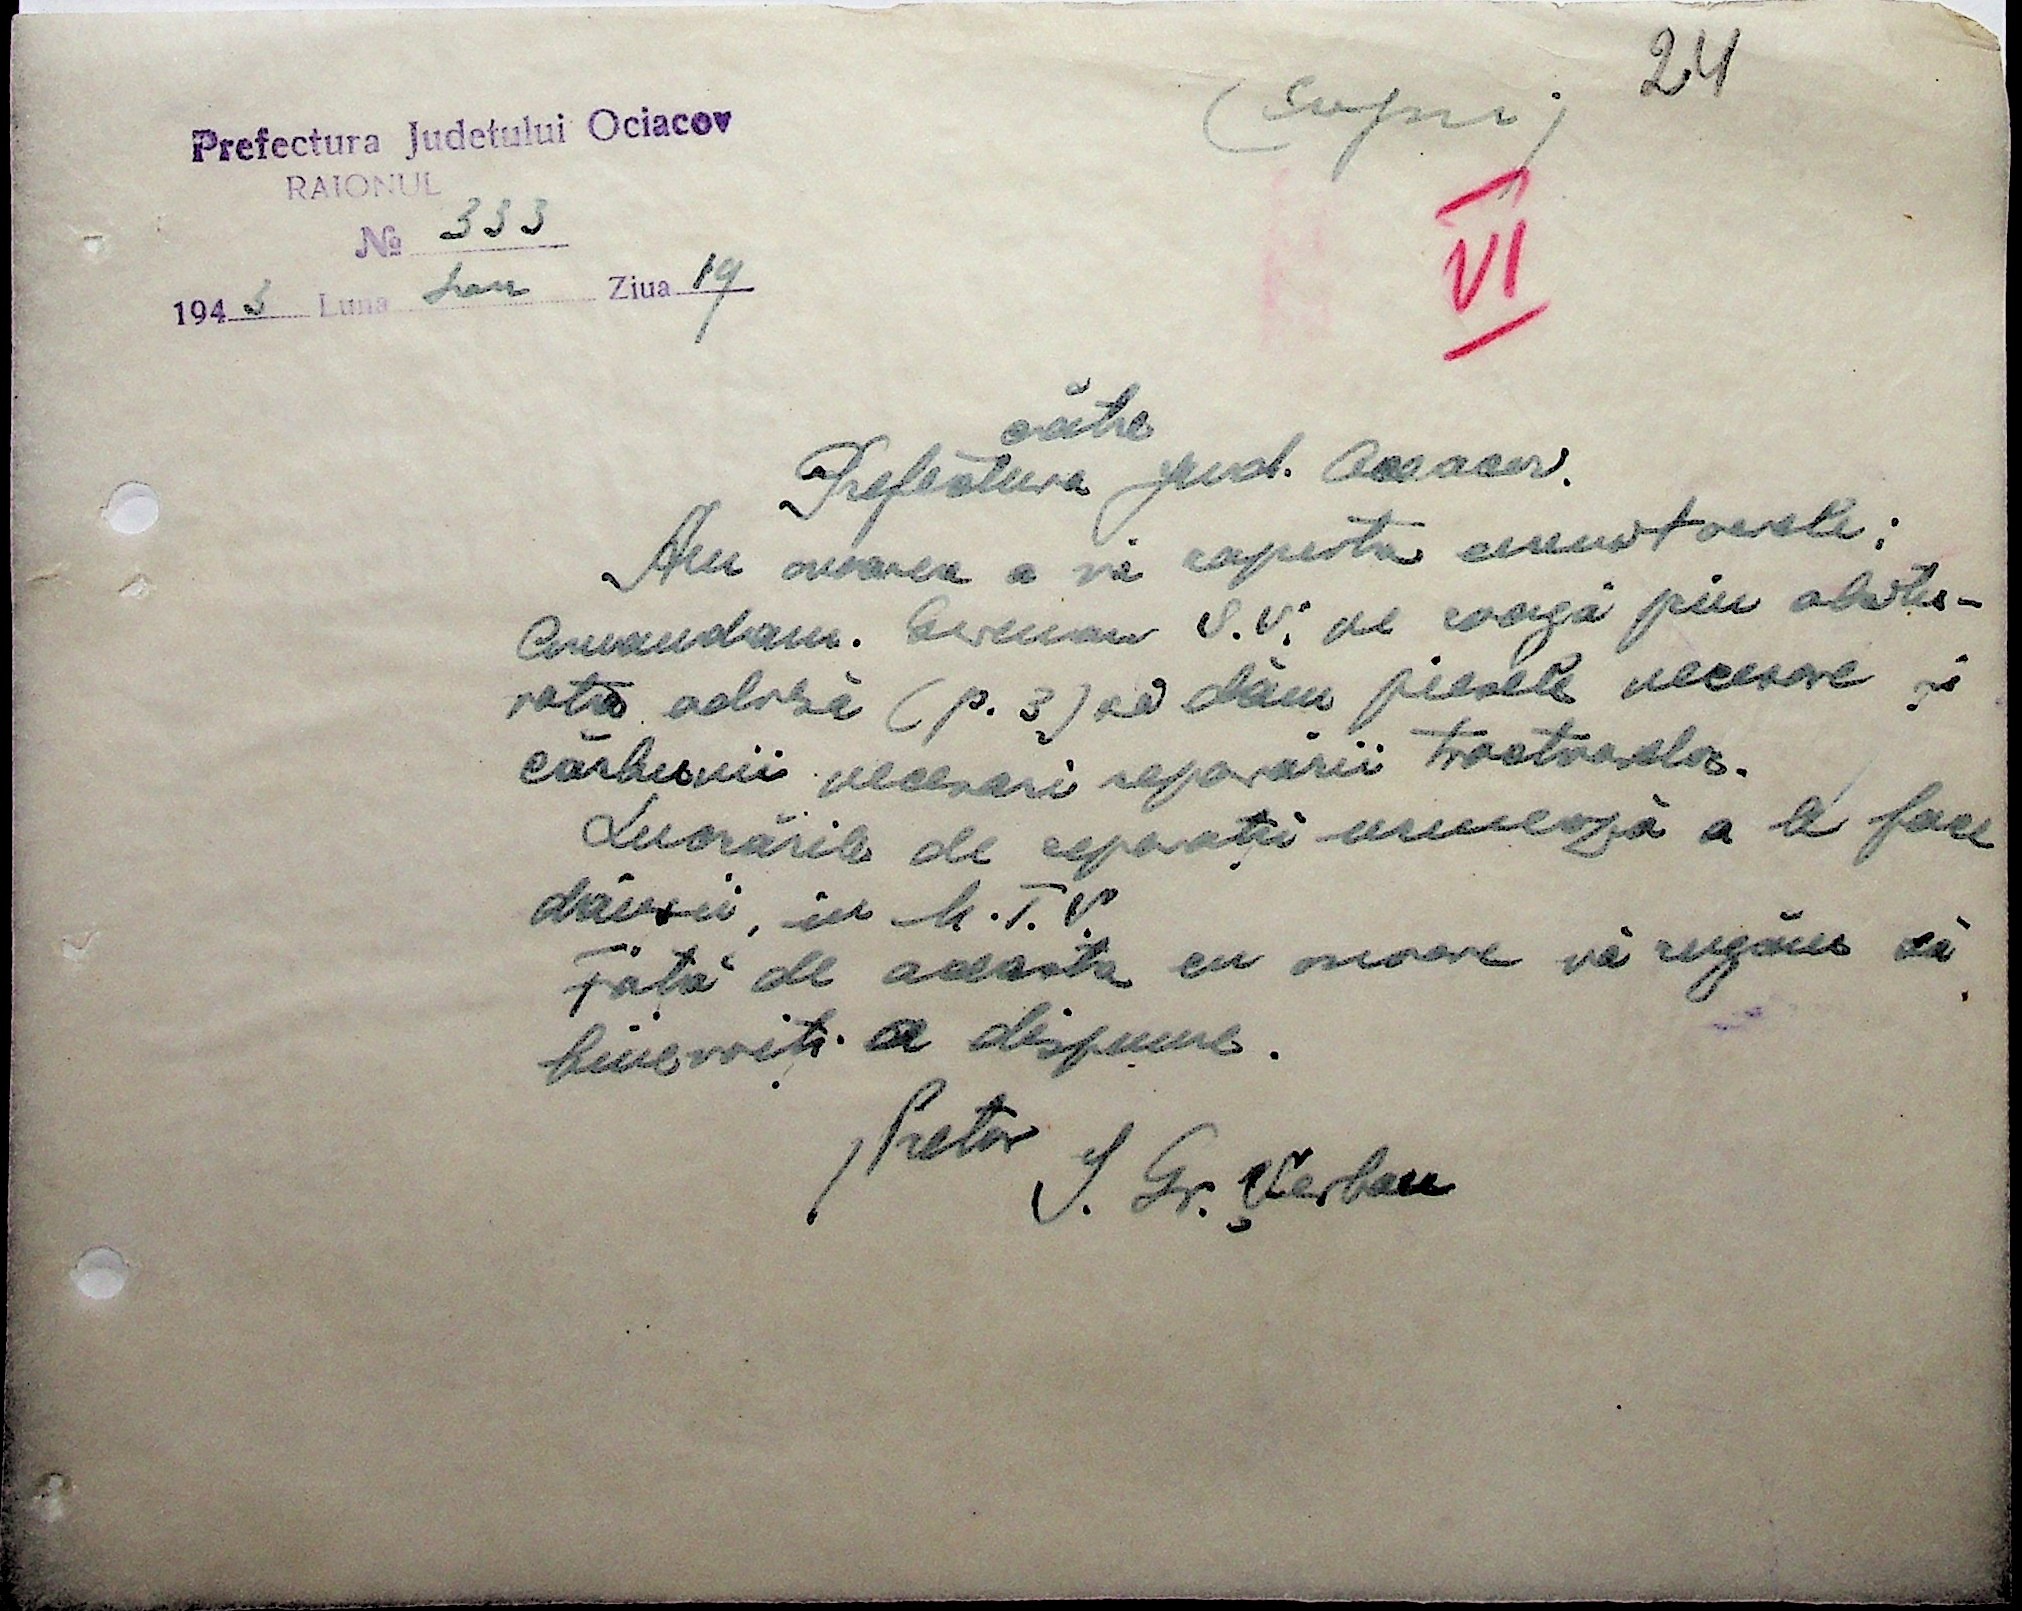 24
Prefectura Județului Ociacov
RAIONUL
№ 333
1943 Luna Ian Ziua 19
VI
către
Prefectura jud. Oceacov.
Am onoarea a vă raporta următoarele:
Comandam. German S.V. ne roagă prin alătu-
rata adresă (p. 3) să dăm piesele necesare și
cărbunii necesari reparării tractoarelor.
Lucrările de reparații urmează a le face
dânsii, in M.T.V.
Față de aceasta cu onoare vă rugăm să
binevoiți a dispune.
Pretor
I. Gr. Șerban